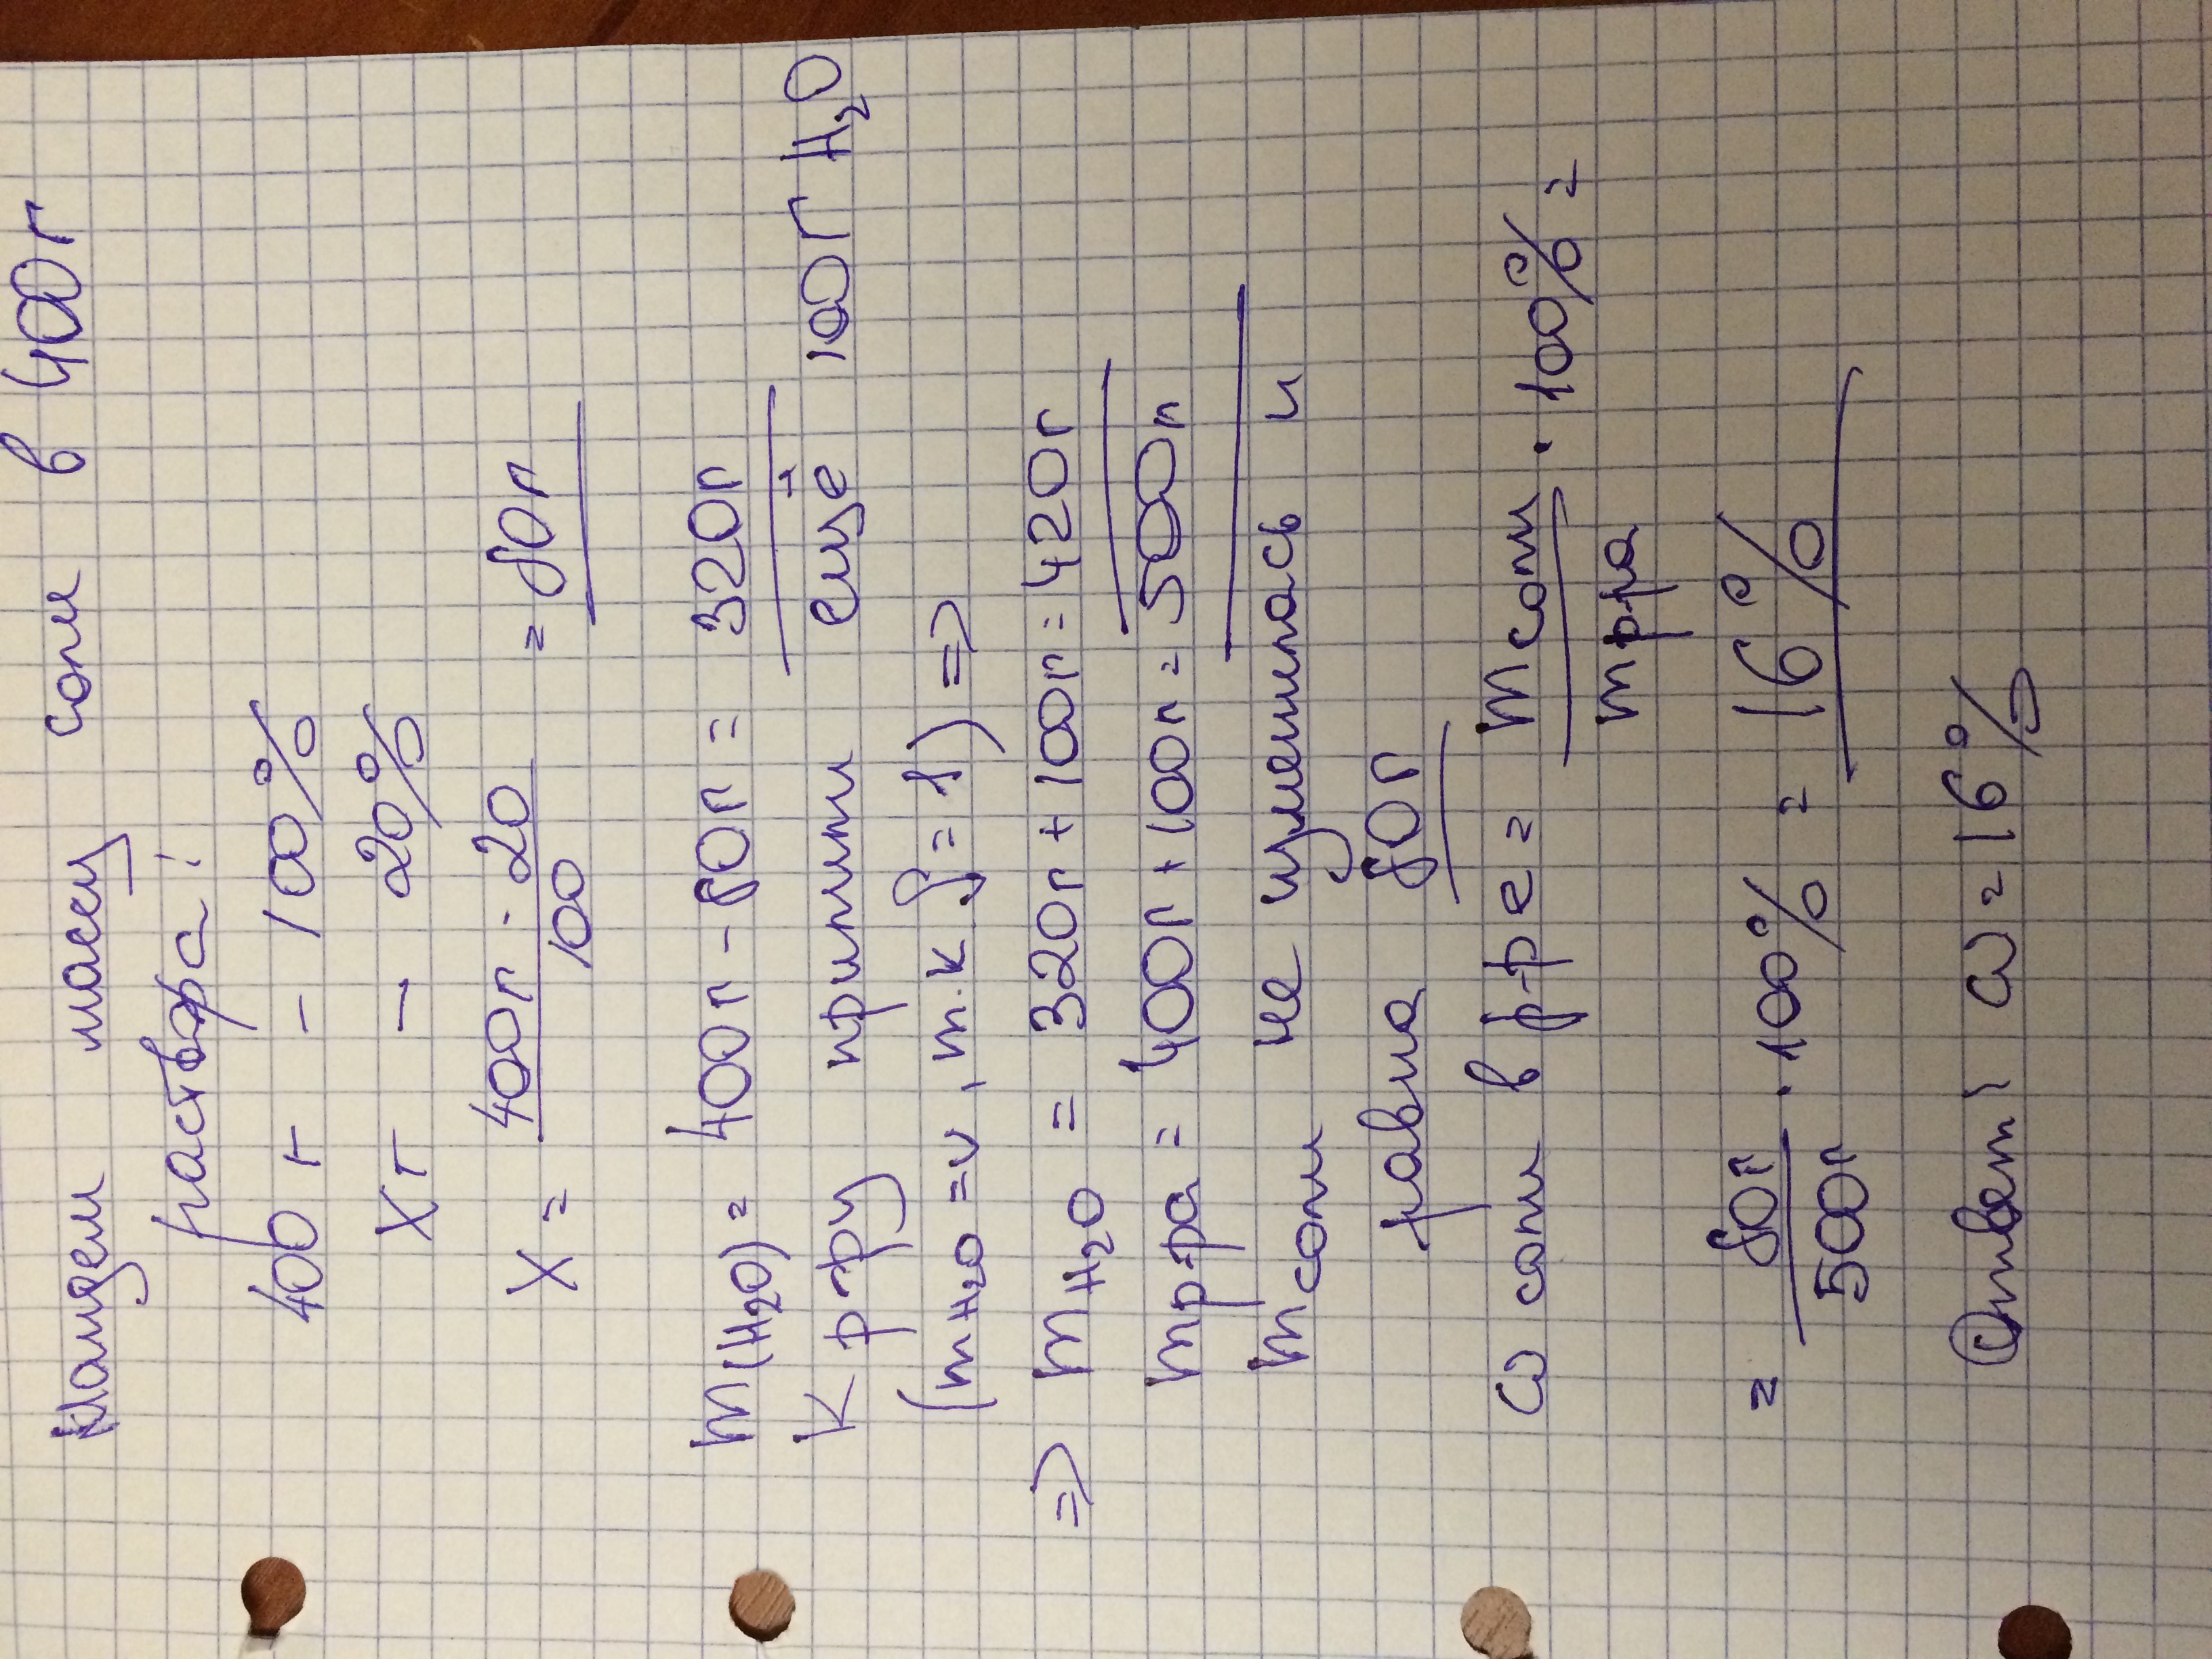 Найдем массу соли в 400г
раствора:
400 г – 100%
Xг – 20%
X = 400г · 20 / 100 = 80г
m(H₂O) = 400г – 80г = 320г
К р-ру прилили ещё 100г H₂O
(mH₂O = v, т.к. ρ = 1) =>
=> mH₂O = 320г + 100г = 420г
mр-ра = 400г + 100г = 500г
mсоли не изменилась и
равна 80г
ω соли в р-ре = mсоли / mр-ра · 100% =
= 80г / 500г · 100% = 16%
Ответ: ω = 16%